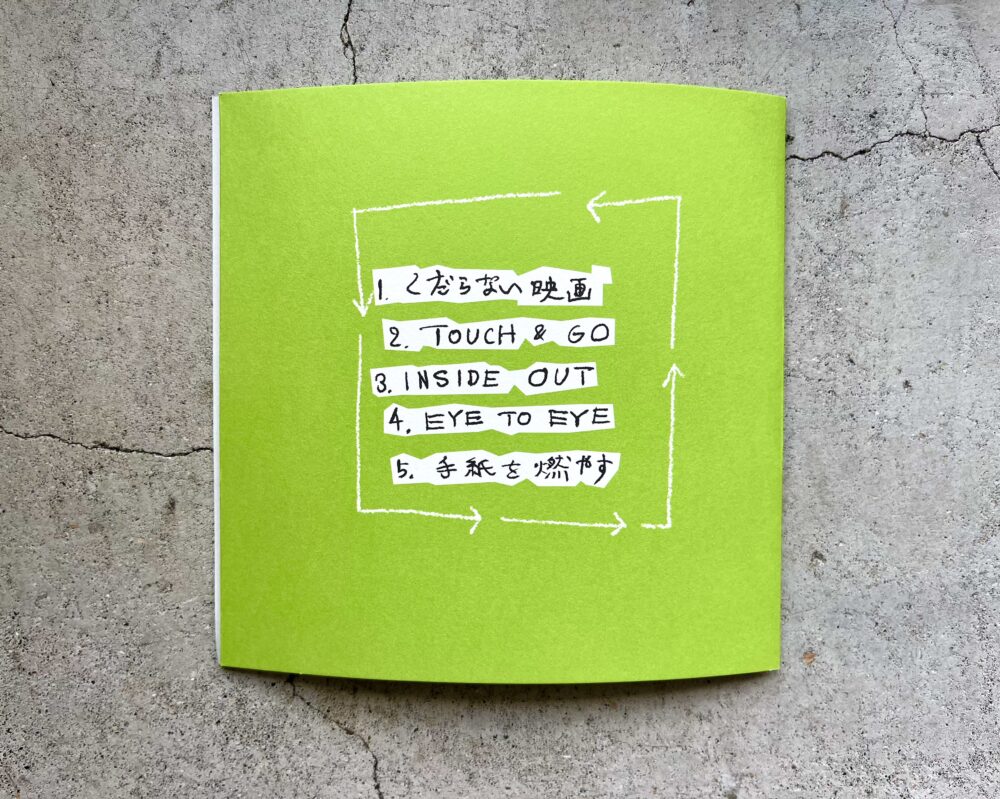 1. くだらない映画
2. TOUCH & GO
3. INSIDE OUT
4. EYE TO EYE
5. 手紙を燃やす